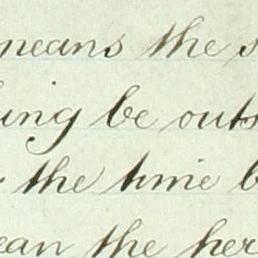 means the s
ing be outs
the time b
ean the per